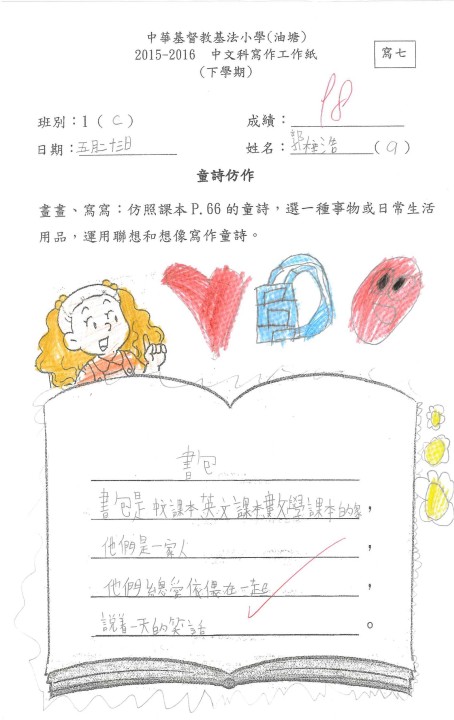 中華基督教基法小學(油塘)
2015-2016 中文科寫作工作紙
寫七
(下學期)
班別：1 ( C )
成績：18
日期：五月二十三日
姓名：郭梓浩 ( 9 )
童詩仿作
畫畫、寫寫：仿照課本 P.66 的童詩，選一種事物或日常生活
用品，運用聯想和想像寫作童詩。
書包
書包是中文課本英文課本數學課本的家，
他們是一家人，
他們總愛依偎在一起，
說着一天的笑話。